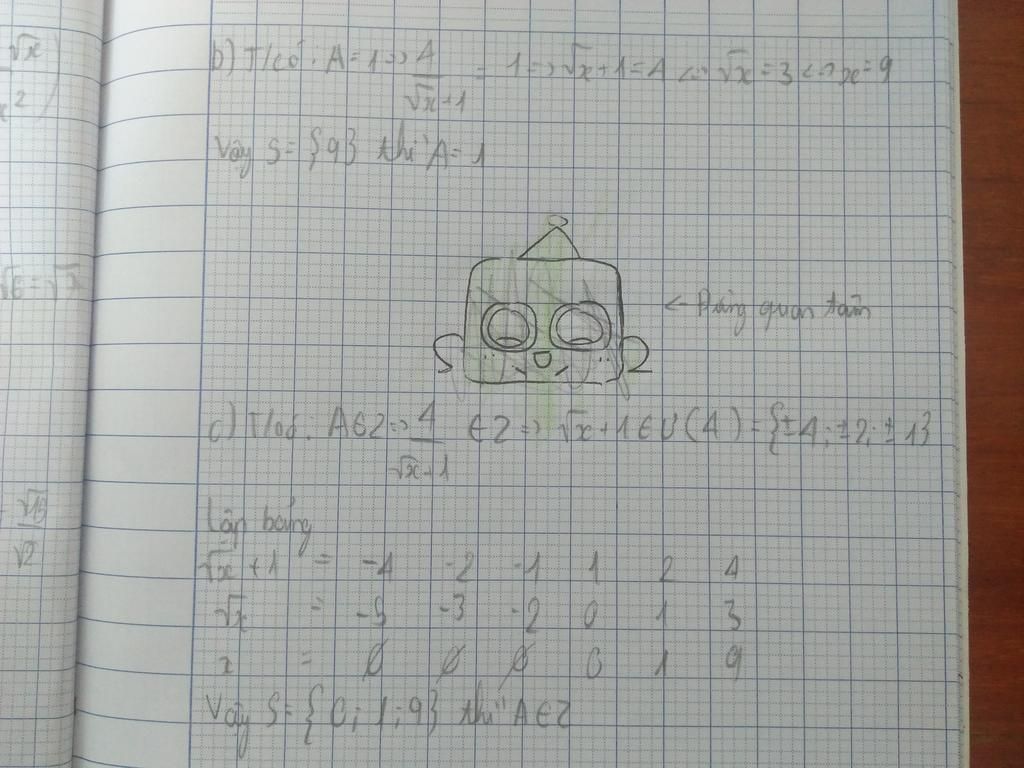 √x
x²
b) T/có: A=1 => 4/(√x+1) = 1 => √x+1=4 <=> √x=3 <=> x=9
Vậy S={9} thì A=1
√6=√x
<- Đừng quan tâm
c) T/có: A∈Z => 4/(√x+1) ∈Z => √x+1∈Ư(4)={±4;±2;±1}
= √13/√2
Lập bảng
√x+1 = -4 -2 -1 1 2 4
√x = -5 -3 -2 0 1 3
x = ∅ ∅ ∅ 0 1 9
Vậy S={0;1;9} thì A∈Z